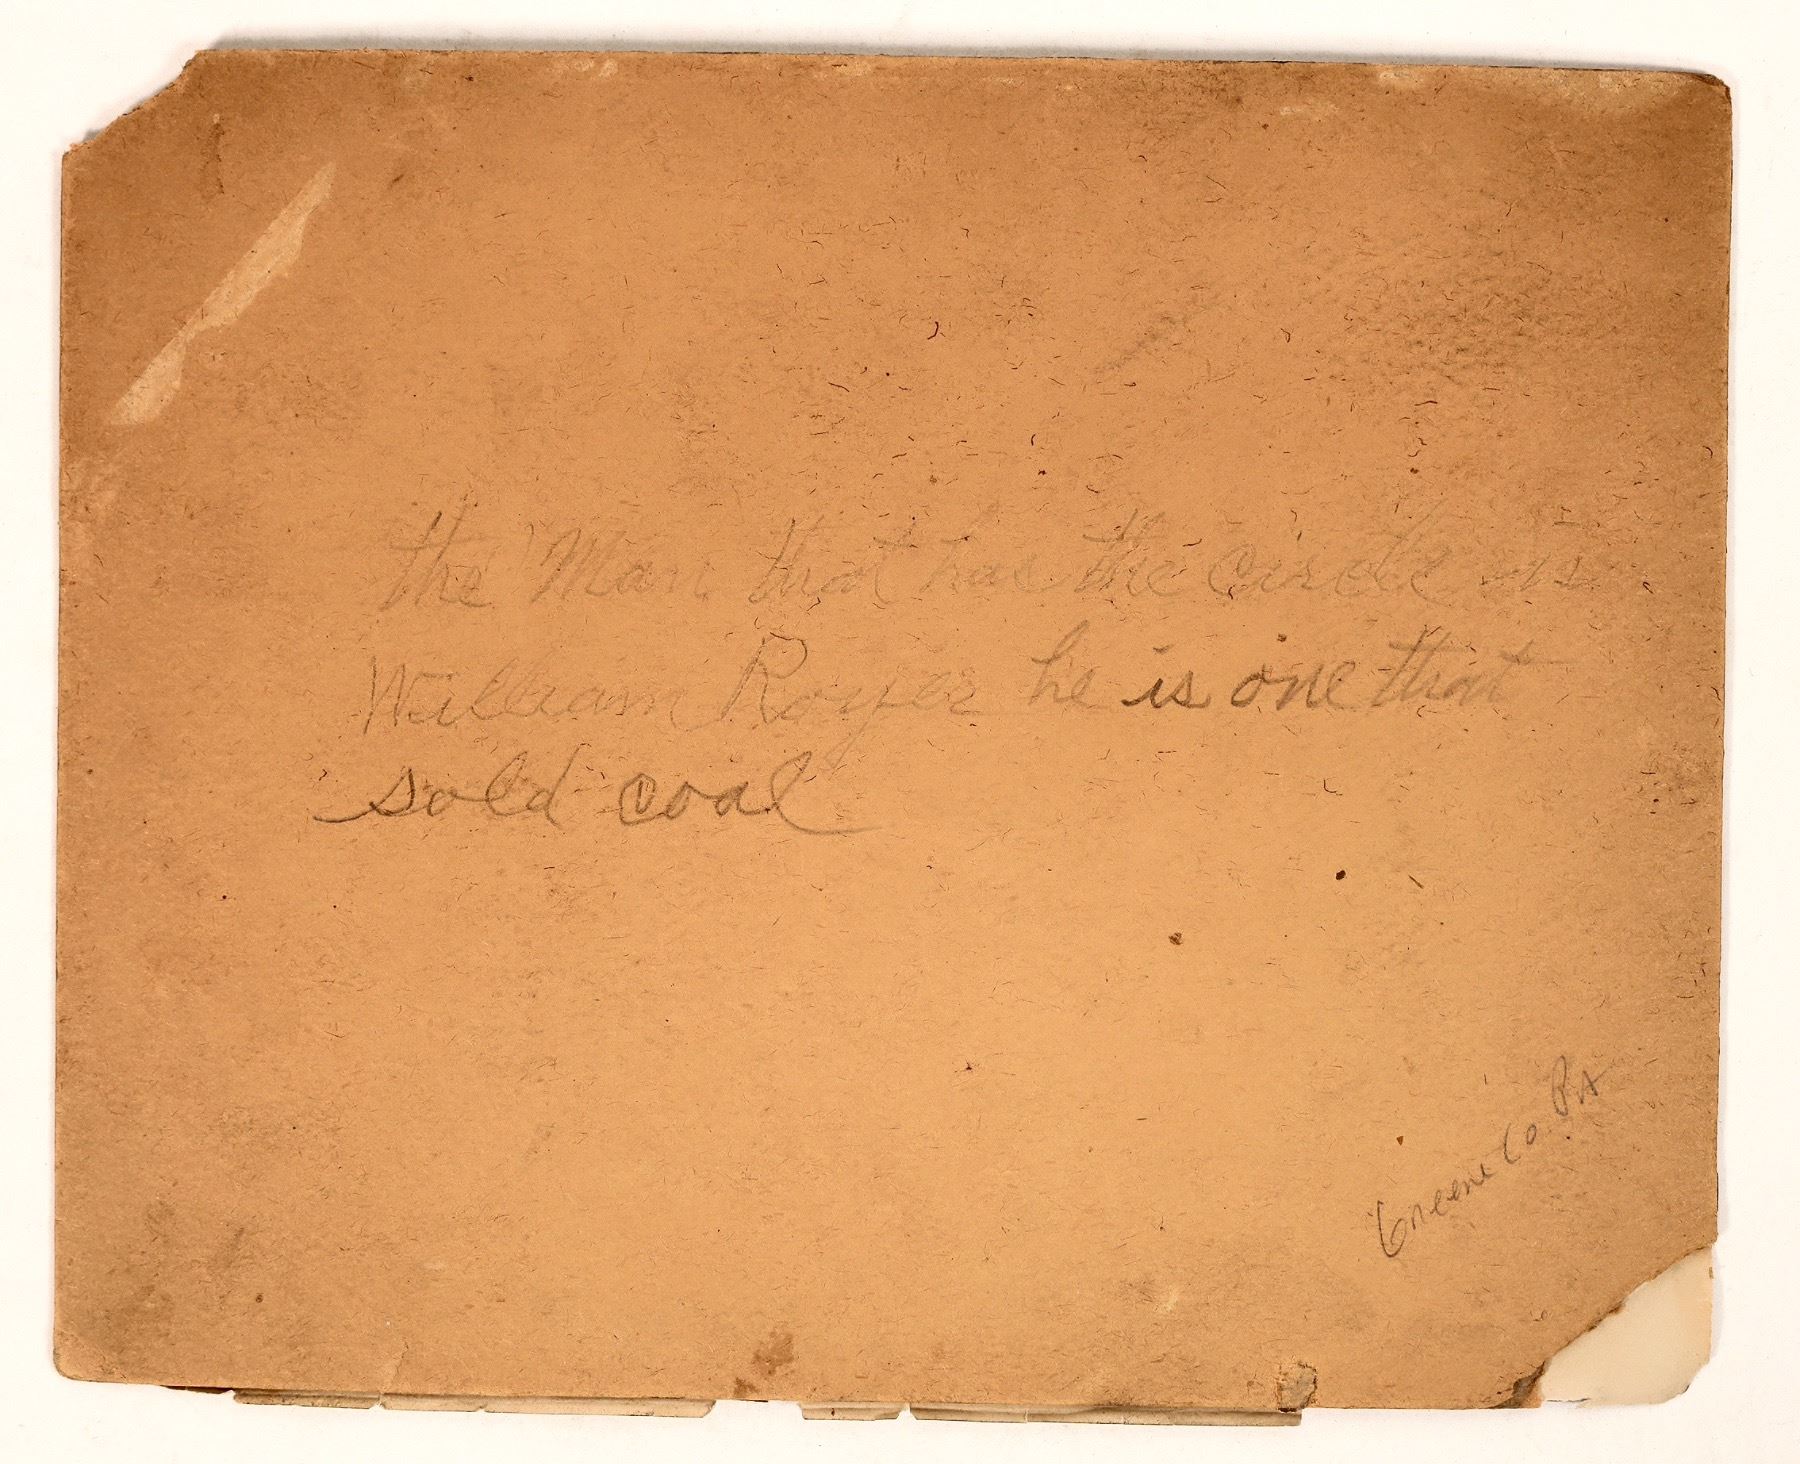 the Man that has the circle is
William Royer he is one that
sold coal
Greene Co. PA